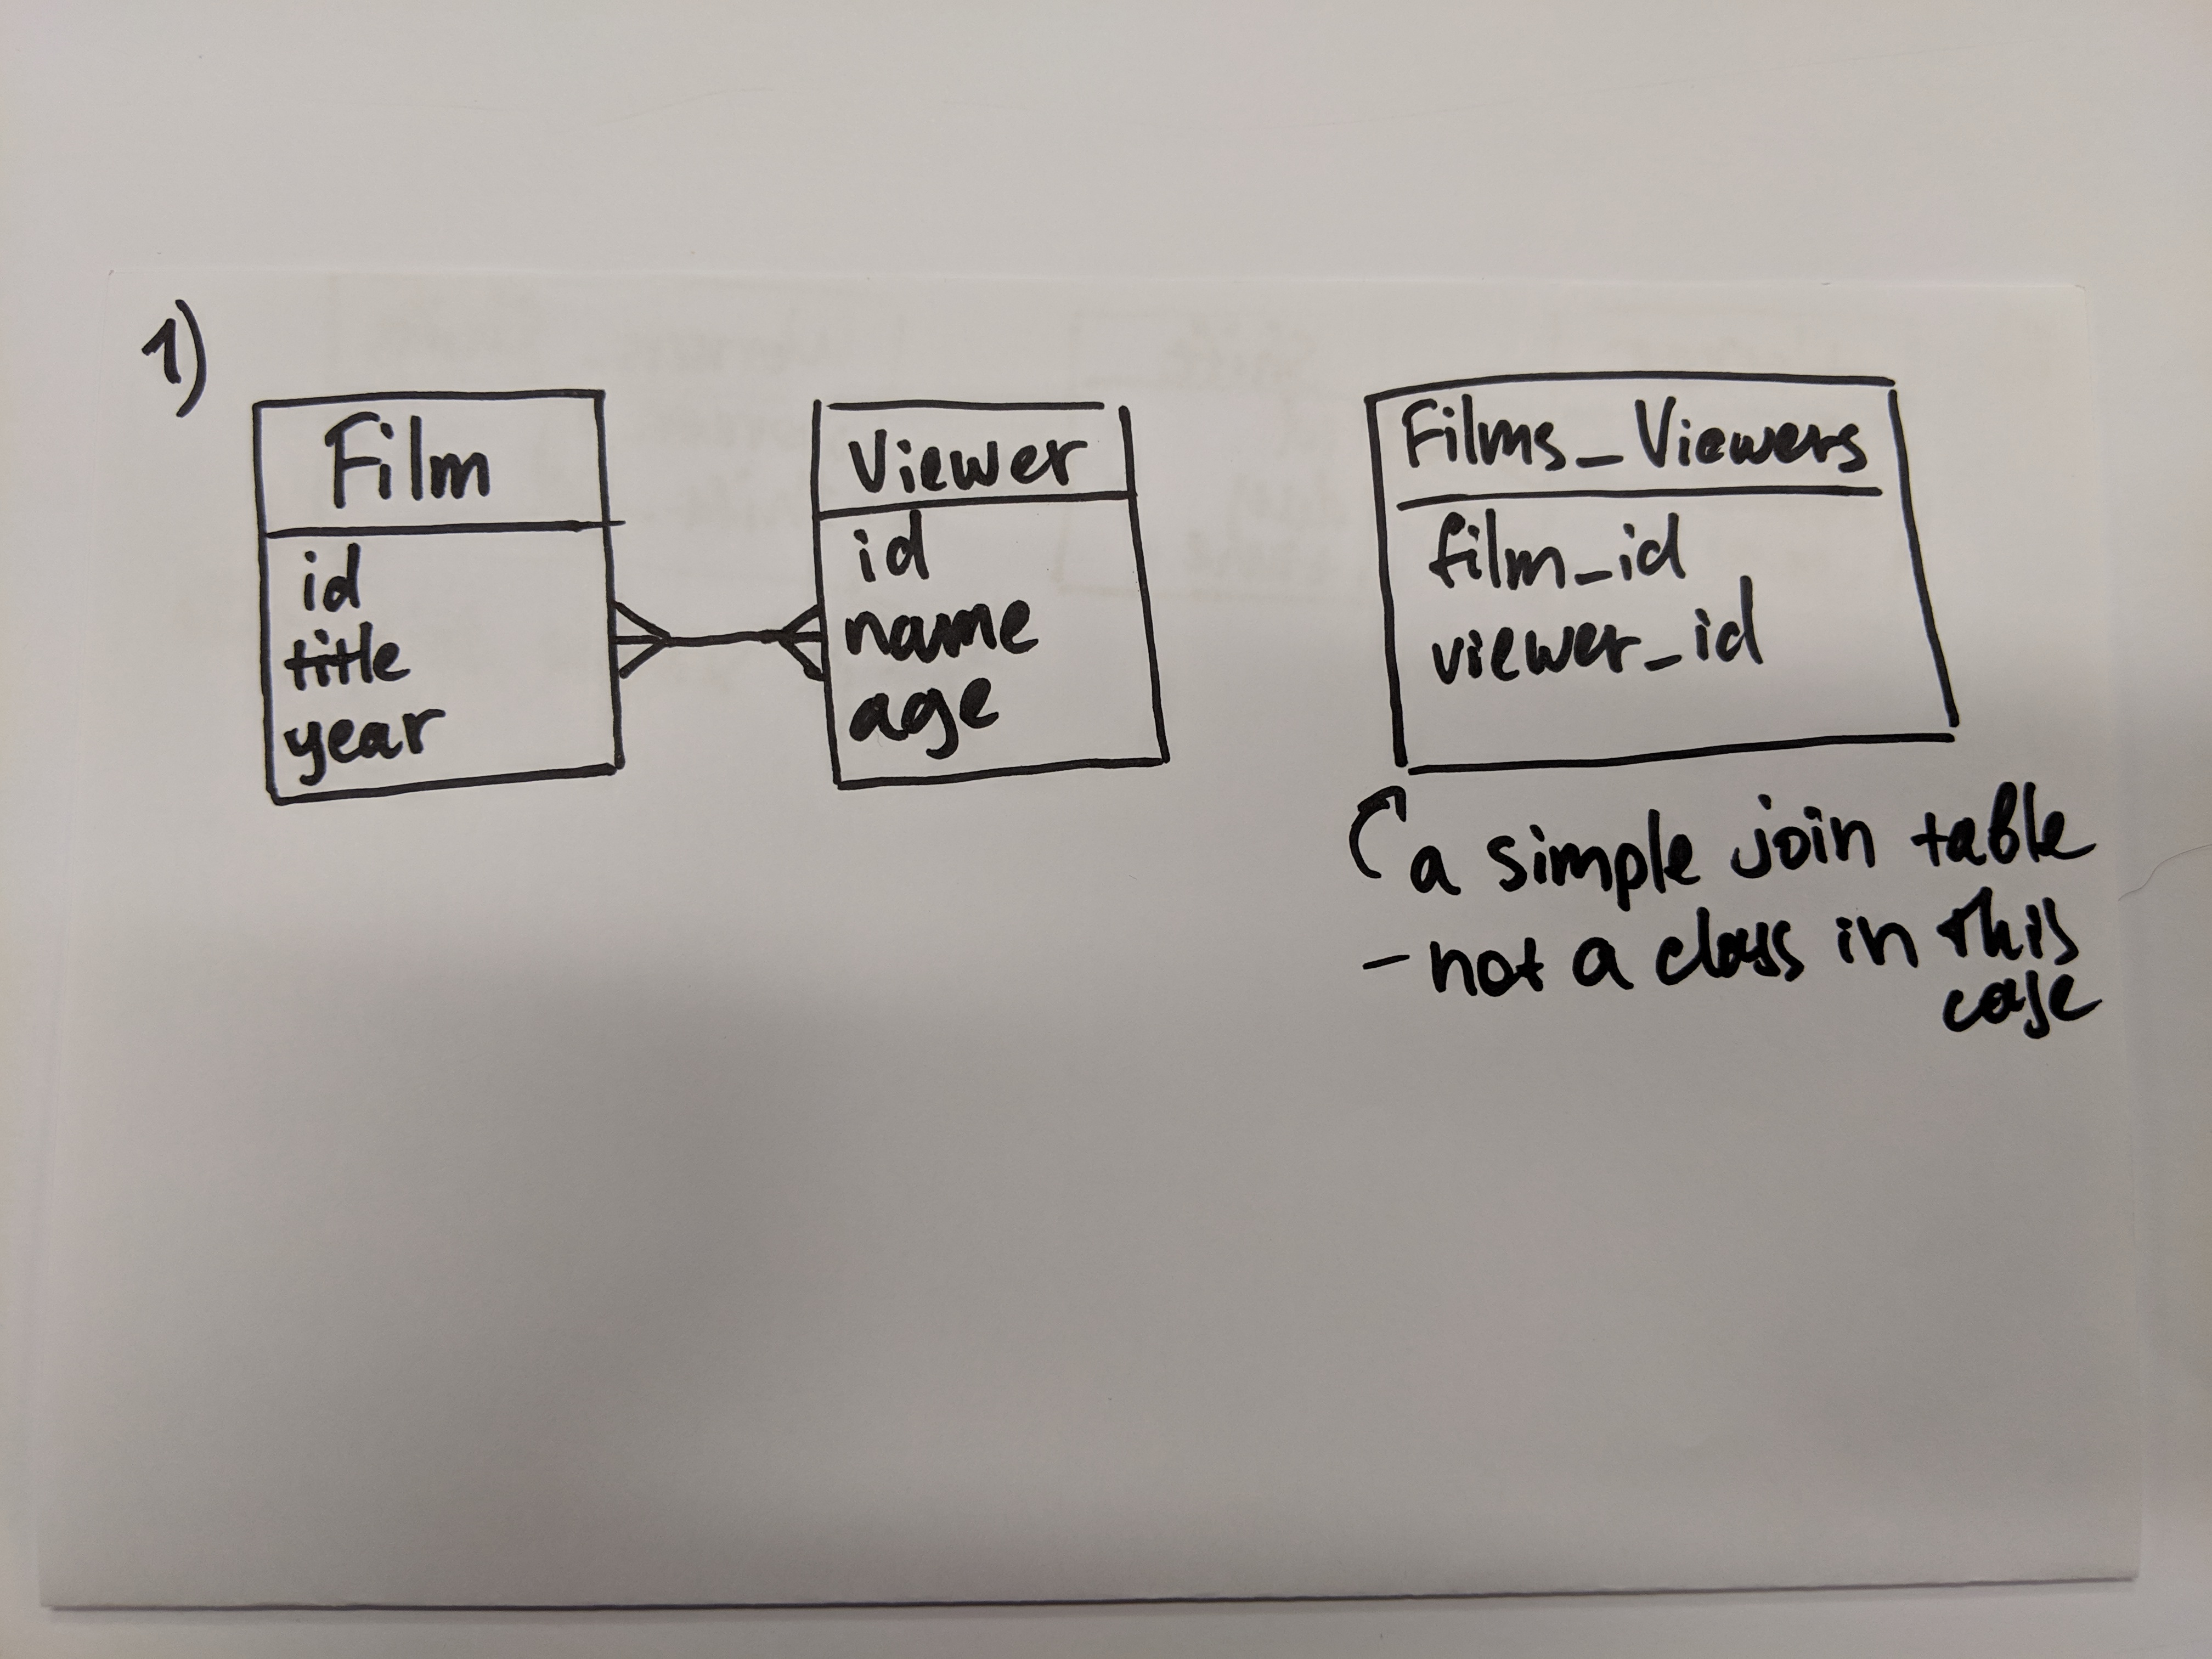 1)
Film
id
title
year
Viewer
id
name
age
Films_Viewers
film_id
viewer_id
(a simple join table
- not a class in this
case